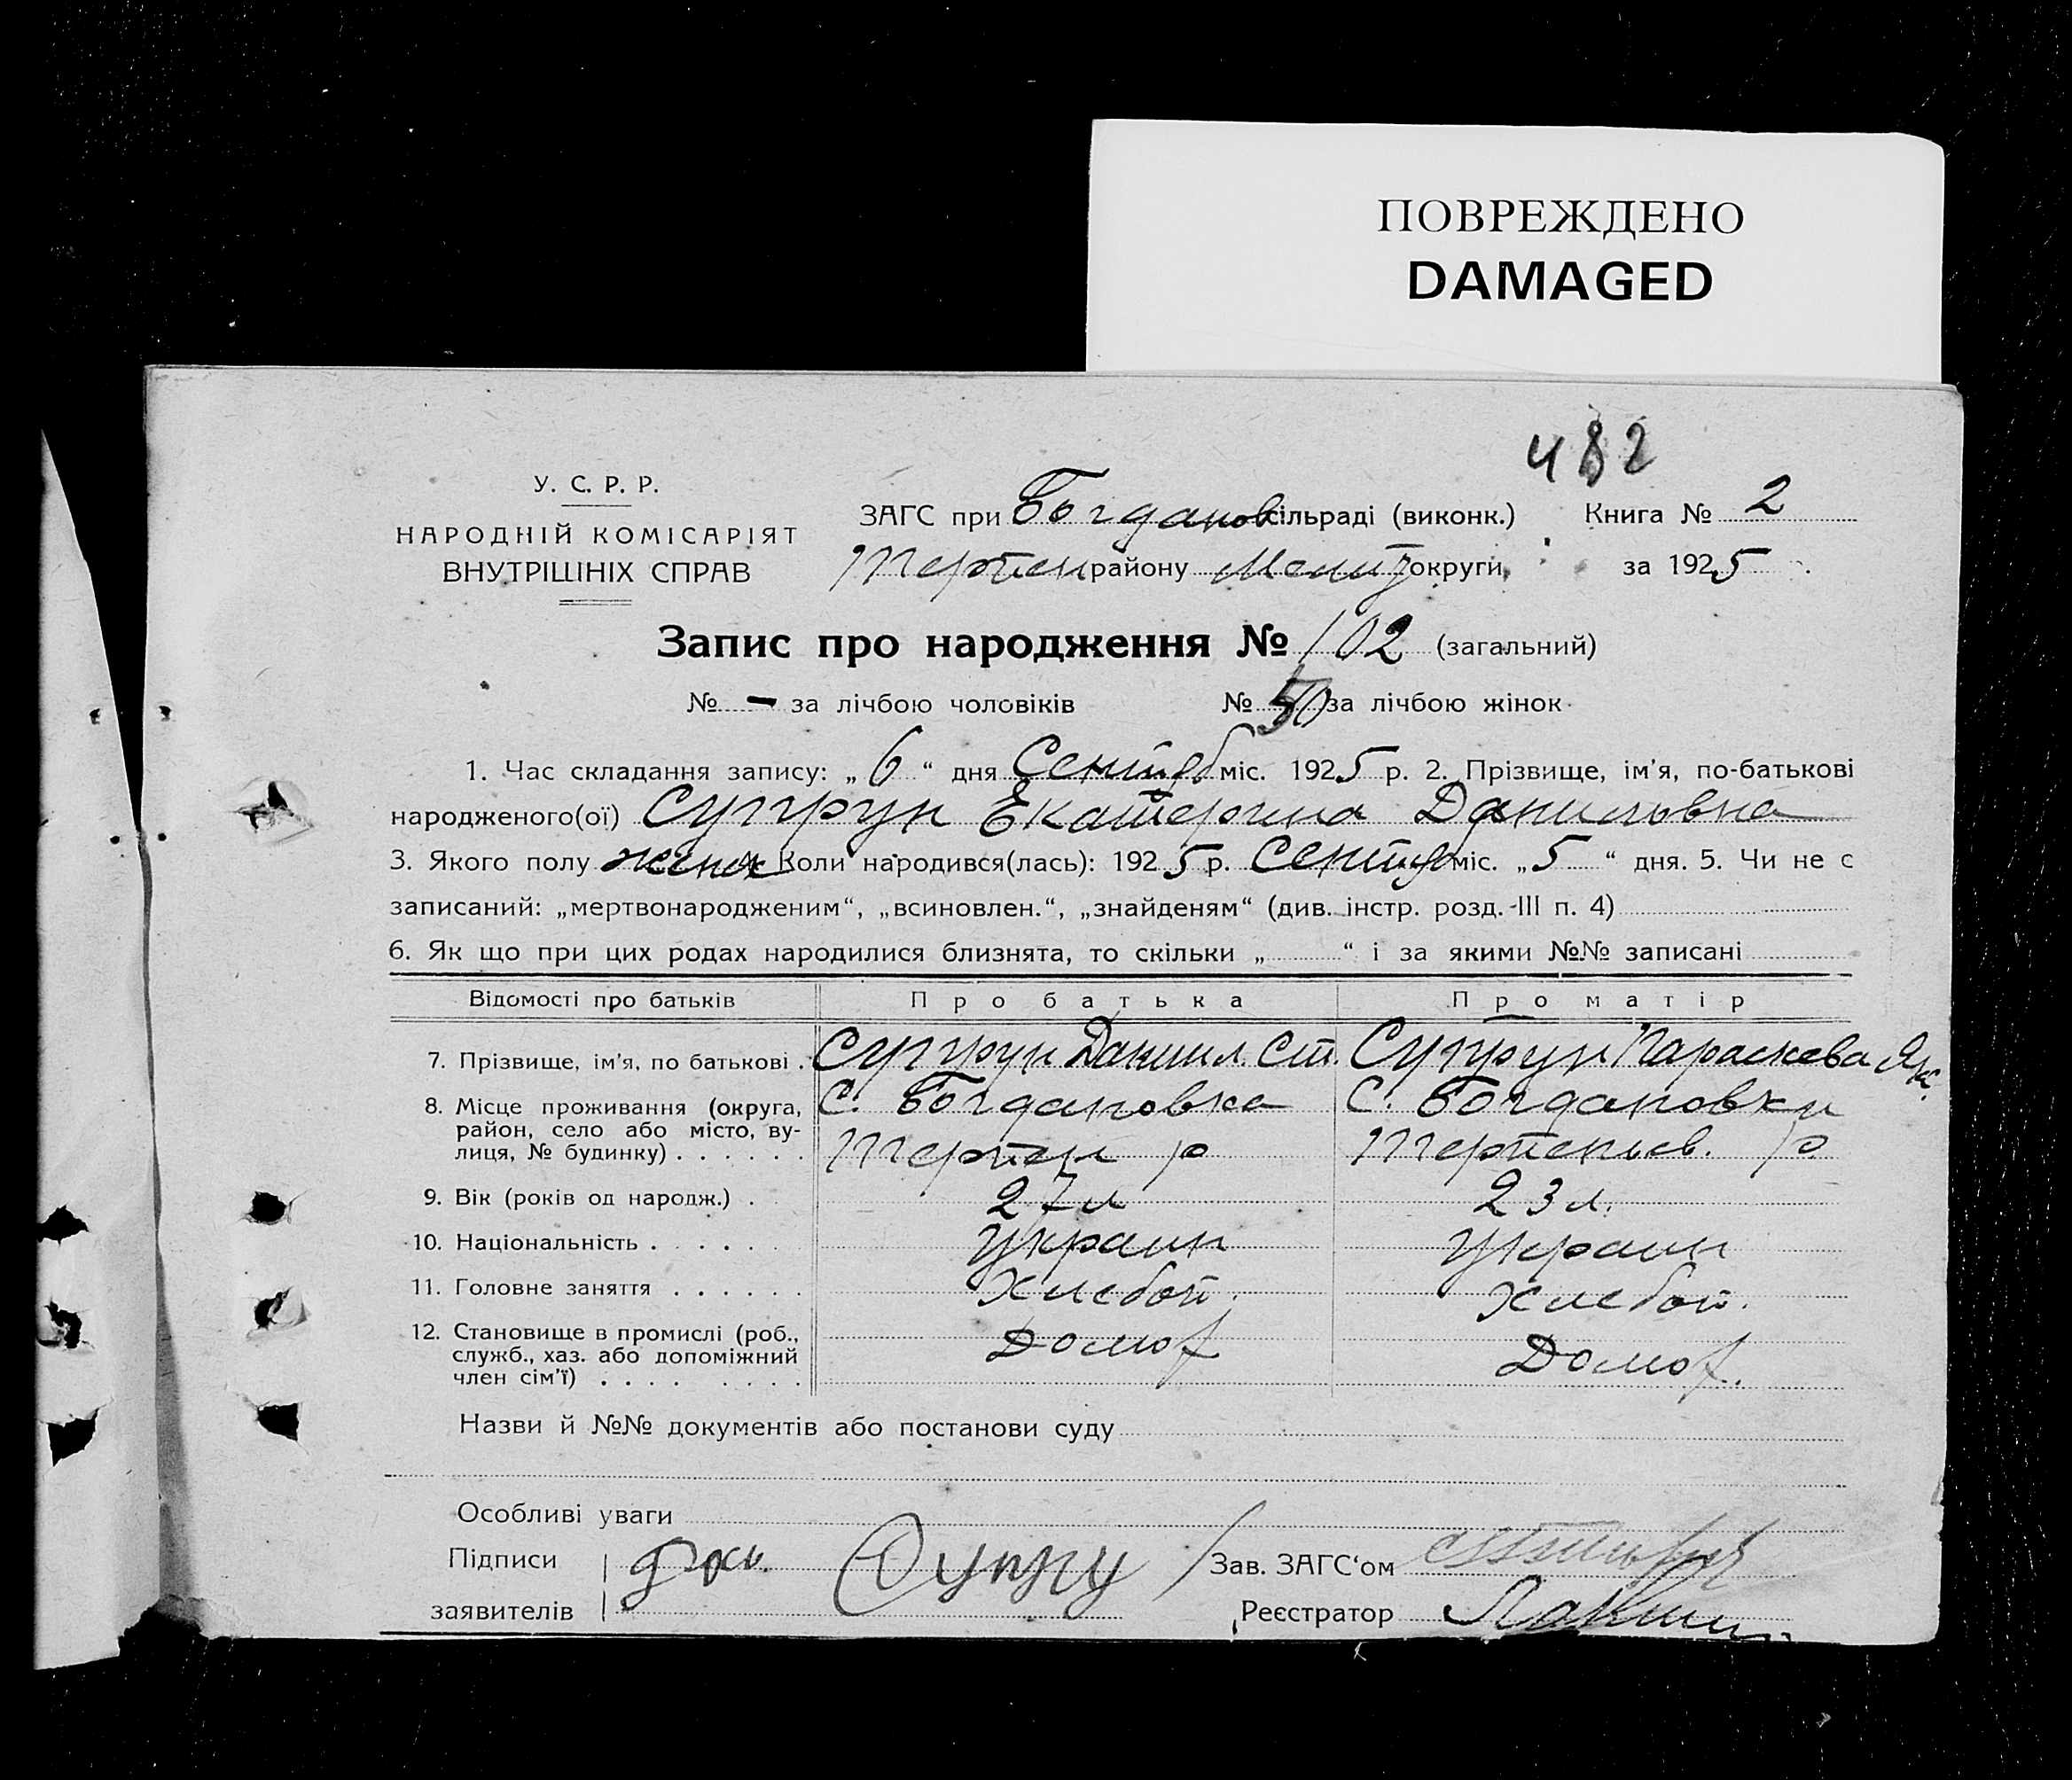 ПОВРЕЖДЕНО
DAMAGED
482
У. С. Р. Р.
НАРОДНІЙ КОМІСАРІЯТ
ВНУТРІШНІХ СПРАВ
ЗАГС при Богданов сільраді (виконк.) Книга № 2
Терпен району Мелит округи, за 1925
Запис про народження № 102 (загальний)
№ - за лічбою чоловіків № 50 за лічбою жінок
1. Час складання запису: „ 6 “ дня Сентяб міс. 1925 р. 2. Прізвище, ім'я, по-батькові
народженого(ої) Супрун Екатерина Даниловна
3. Якого полу женск 4. Коли народився(лась): 1925 р. Сентяб міс. „ 5 “ дня. 5. Чи не є
записаний: „мертвонародженим“, „всиновлен.“, „знайденям“ (див. інстр. розд. III п. 4)
6. Як що при цих родах народилися близнята, то скільки „ “ і за якими №№ записані
Відомості про батьків Про батька Про матір
7. Прізвище, ім'я, по батькові . Супрун Данил. Ст. Супрун Параскева Як.
8. Місце проживання (округа, С. Богдановка С. Богдановки
район, село або місто, ву-
лиця, № будинку) . . . . . . Терпен р Терпеньев. р.
9. Вік (років од народж.) . 27 л 23 л.
10. Національність . . . . . Украин Украин
11. Головне заняття . . . . . . Хлебоп. Хлебоп.
12. Становище в промислі (роб., Домох Домох.
служб., хаз. або допоміжний
член сім'ї) . . . . . . . .
Назви й №№ документів або постанови суду
Особливі уваги
Підписи Супру Зав. ЗАГС‘ом
заявителів Реєстратор